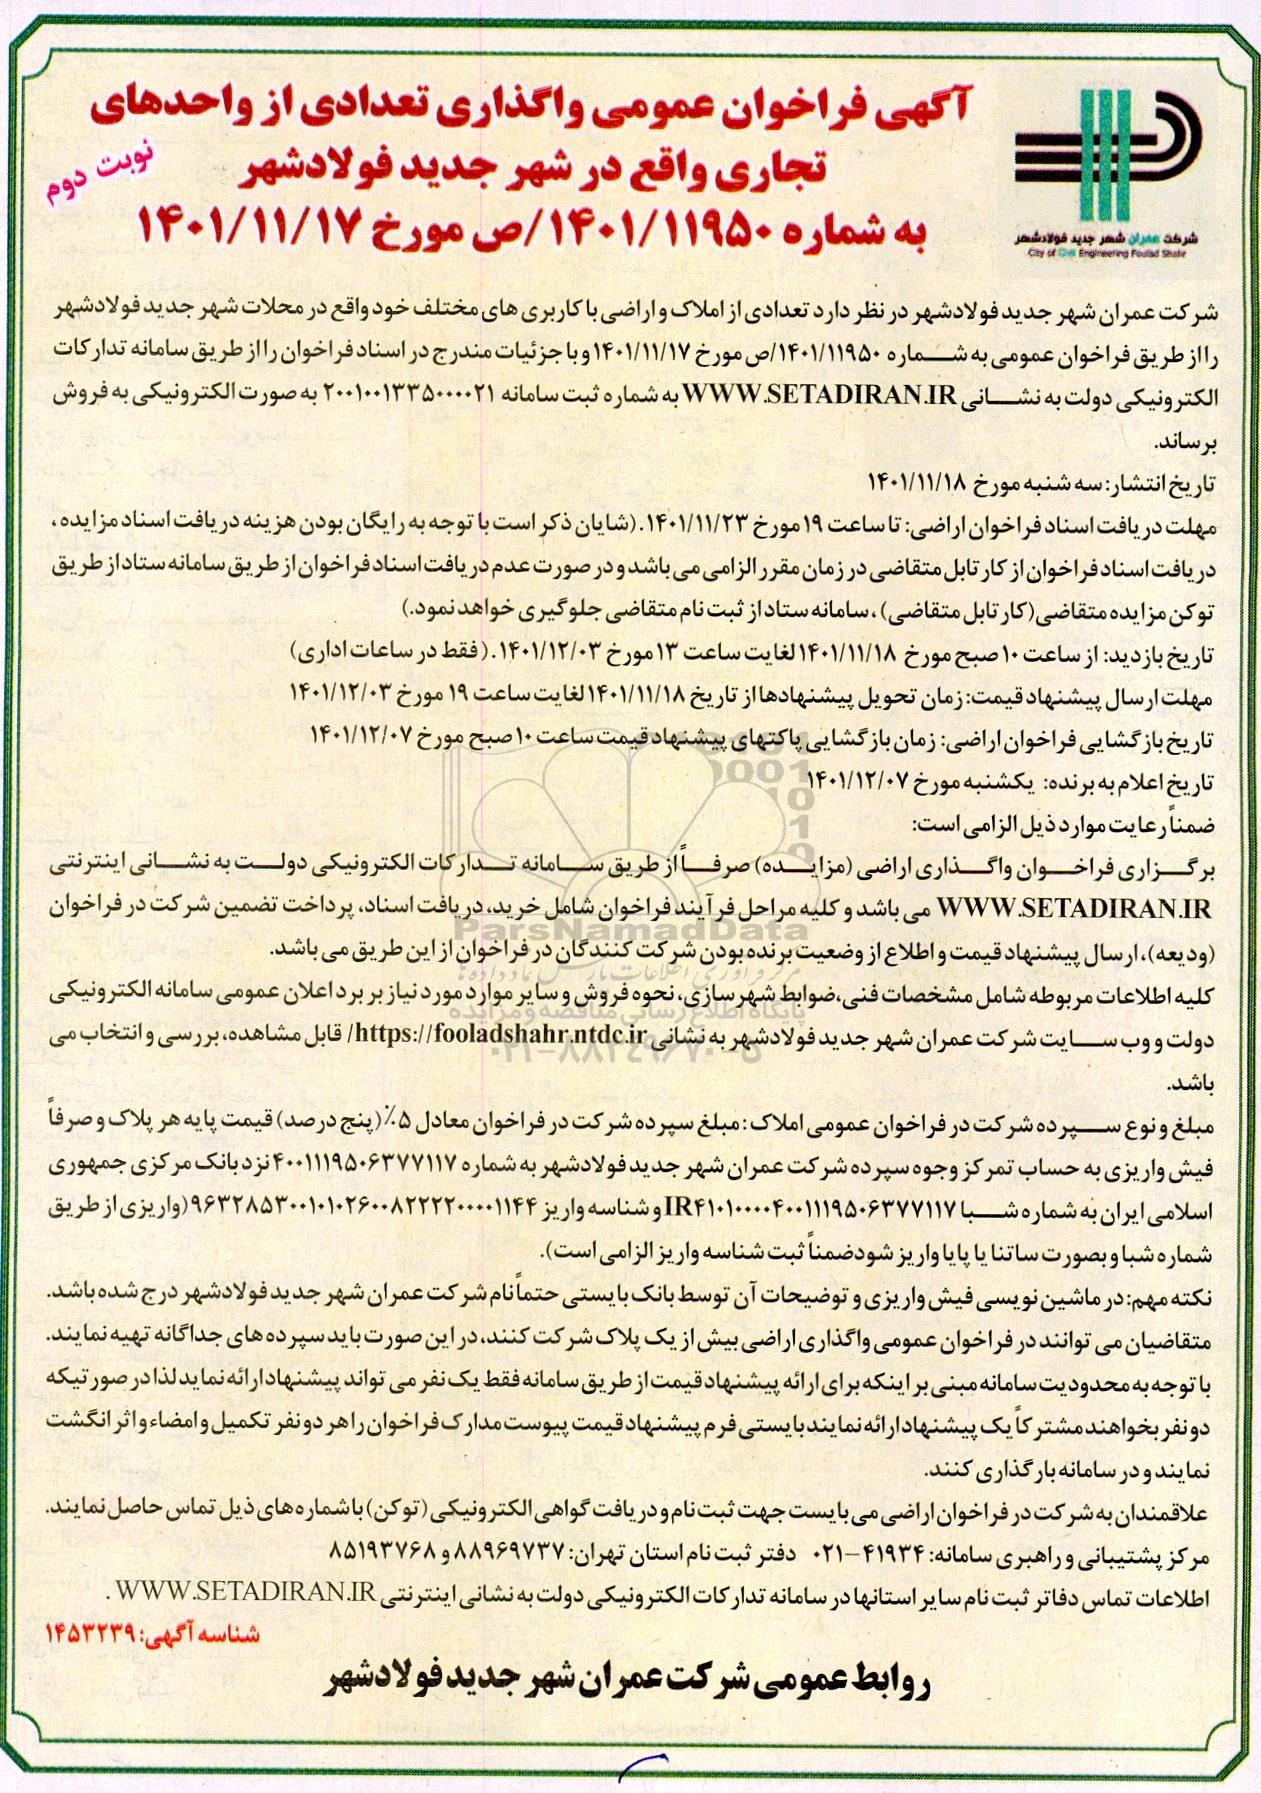 آگهی فراخوان عمومی واگذاری تعدادی از واحدهای
تجاری واقع در شهر جدید فولادشهر
نوبت دوم
به شماره ۱۴۰۱/۱۱۹۵۰/ص مورخ ۱۴۰۱/۱۱/۱۷
شرکت عمران شهر جدید فولادشهر
City of Civil Engineering Foolad Shahr
شرکت عمران شهر جدید فولادشهر در نظر دارد تعدادی از املاک و اراضی با کاربری های مختلف خود واقع در محلات شهر جدید فولادشهر
را از طریق فراخوان عمومی به شماره ۱۴۰۱/۱۱۹۵۰/ص مورخ ۱۴۰۱/۱۱/۱۷ و با جزئیات مندرج در اسناد فراخوان را از طریق سامانه تدارکات
الکترونیکی دولت به نشانی WWW.SETADIRAN.IR به شماره ثبت سامانه ۲۰۰۱۰۰۱۳۳۵۰۰۰۰۲۱ به صورت الکترونیکی به فروش
برساند.
تاریخ انتشار: سه شنبه مورخ ۱۴۰۱/۱۱/۱۸
مهلت دریافت اسناد فراخوان اراضی: تا ساعت ۱۹ مورخ ۱۴۰۱/۱۱/۲۳. (شایان ذکر است با توجه به رایگان بودن هزینه دریافت اسناد مزایده،
دریافت اسناد فراخوان از کارتابل متقاضی در زمان مقرر الزامی می باشد و در صورت عدم دریافت اسناد فراخوان از طریق سامانه ستاد از طریق
توکن مزایده متقاضی (کارتابل متقاضی)، سامانه ستاد از ثبت نام متقاضی جلوگیری خواهد نمود.)
تاریخ بازدید: از ساعت ۱۰ صبح مورخ ۱۴۰۱/۱۱/۱۸ لغایت ساعت ۱۳ مورخ ۱۴۰۱/۱۲/۰۳. (فقط در ساعات اداری)
مهلت ارسال پیشنهاد قیمت: زمان تحویل پیشنهادها از تاریخ ۱۴۰۱/۱۱/۱۸ لغایت ساعت ۱۹ مورخ ۱۴۰۱/۱۲/۰۳
تاریخ بازگشایی فراخوان اراضی: زمان بازگشایی پاکتهای پیشنهاد قیمت ساعت ۱۰ صبح مورخ ۱۴۰۱/۱۲/۰۷
تاریخ اعلام به برنده: یکشنبه مورخ ۱۴۰۱/۱۲/۰۷
ضمناً رعایت موارد ذیل الزامی است:
برگزاری فراخوان واگذاری اراضی (مزایده) صرفاً از طریق سامانه تدارکات الکترونیکی دولت به نشانی اینترنتی
WWW.SETADIRAN.IR می باشد و کلیه مراحل فرآیند فراخوان شامل خرید، دریافت اسناد، پرداخت تضمین شرکت در فراخوان
(ودیعه)، ارسال پیشنهاد قیمت و اطلاع از وضعیت برنده بودن شرکت کنندگان در فراخوان از این طریق می باشد.
ParsNamadData
پایگاه اطلاع رسانی مناقصه و مزایده
۰۲۱-۸۸۳۴۹۶۷۰-۵
کلیه اطلاعات مربوطه شامل مشخصات فنی، ضوابط شهرسازی، نحوه فروش و سایر موارد مورد نیاز بر برد اعلان عمومی سامانه الکترونیکی
دولت و وب سایت شرکت عمران شهر جدید فولادشهر به نشانی https://fooladshahr.ntdc.ir/ قابل مشاهده، بررسی و انتخاب می
باشد.
مبلغ و نوع سپرده شرکت در فراخوان عمومی املاک: مبلغ سپرده شرکت در فراخوان معادل ۵٪ (پنج درصد) قیمت پایه هر پلاک و صرفاً
فیش واریزی به حساب تمرکز وجوه سپرده شرکت عمران شهر جدید فولادشهر به شماره ۴۰۰۱۱۱۹۵۰۶۳۷۷۱۱۷ نزد بانک مرکزی جمهوری
اسلامی ایران به شماره شبا IR۴۱۰۱۰۰۰۰۴۰۰۱۱۱۹۵۰۶۳۷۷۱۱۷ و شناسه واریز ۹۶۳۲۸۵۳۰۰۱۰۱۰۲۶۰۰۸۲۲۲۲۰۰۰۰۱۱۴۴ (واریزی از طریق
شماره شبا و بصورت ساتنا یا پایا واریز شود ضمناً ثبت شناسه واریز الزامی است).
نکته مهم: در ماشین نویسی فیش واریزی و توضیحات آن توسط بانک بایستی حتماً نام شرکت عمران شهر جدید فولادشهر درج شده باشد.
متقاضیان می توانند در فراخوان عمومی واگذاری اراضی بیش از یک پلاک شرکت کنند، در این صورت باید سپرده های جداگانه تهیه نمایند.
با توجه به محدودیت سامانه مبنی بر اینکه برای ارائه پیشنهاد قیمت از طریق سامانه فقط یک نفر می تواند پیشنهاد ارائه نماید لذا در صورتیکه
دو نفر بخواهند مشترکاً یک پیشنهاد ارائه نمایند بایستی فرم پیشنهاد قیمت پیوست مدارک فراخوان را هر دو نفر تکمیل و امضاء و اثر انگشت
نمایند و در سامانه بارگذاری کنند.
علاقمندان به شرکت در فراخوان اراضی می بایست جهت ثبت نام و دریافت گواهی الکترونیکی (توکن) با شماره های ذیل تماس حاصل نمایند.
مرکز پشتیبانی و راهبری سامانه: ۴۱۹۳۴-۰۲۱ دفتر ثبت نام استان تهران: ۸۸۹۶۹۷۳۷ و ۸۵۱۹۳۷۶۸
اطلاعات تماس دفاتر ثبت نام سایر استانها در سامانه تدارکات الکترونیکی دولت به نشانی اینترنتی WWW.SETADIRAN.IR .
شناسه آگهی: ۱۴۵۳۲۳۹
روابط عمومی شرکت عمران شهر جدید فولادشهر